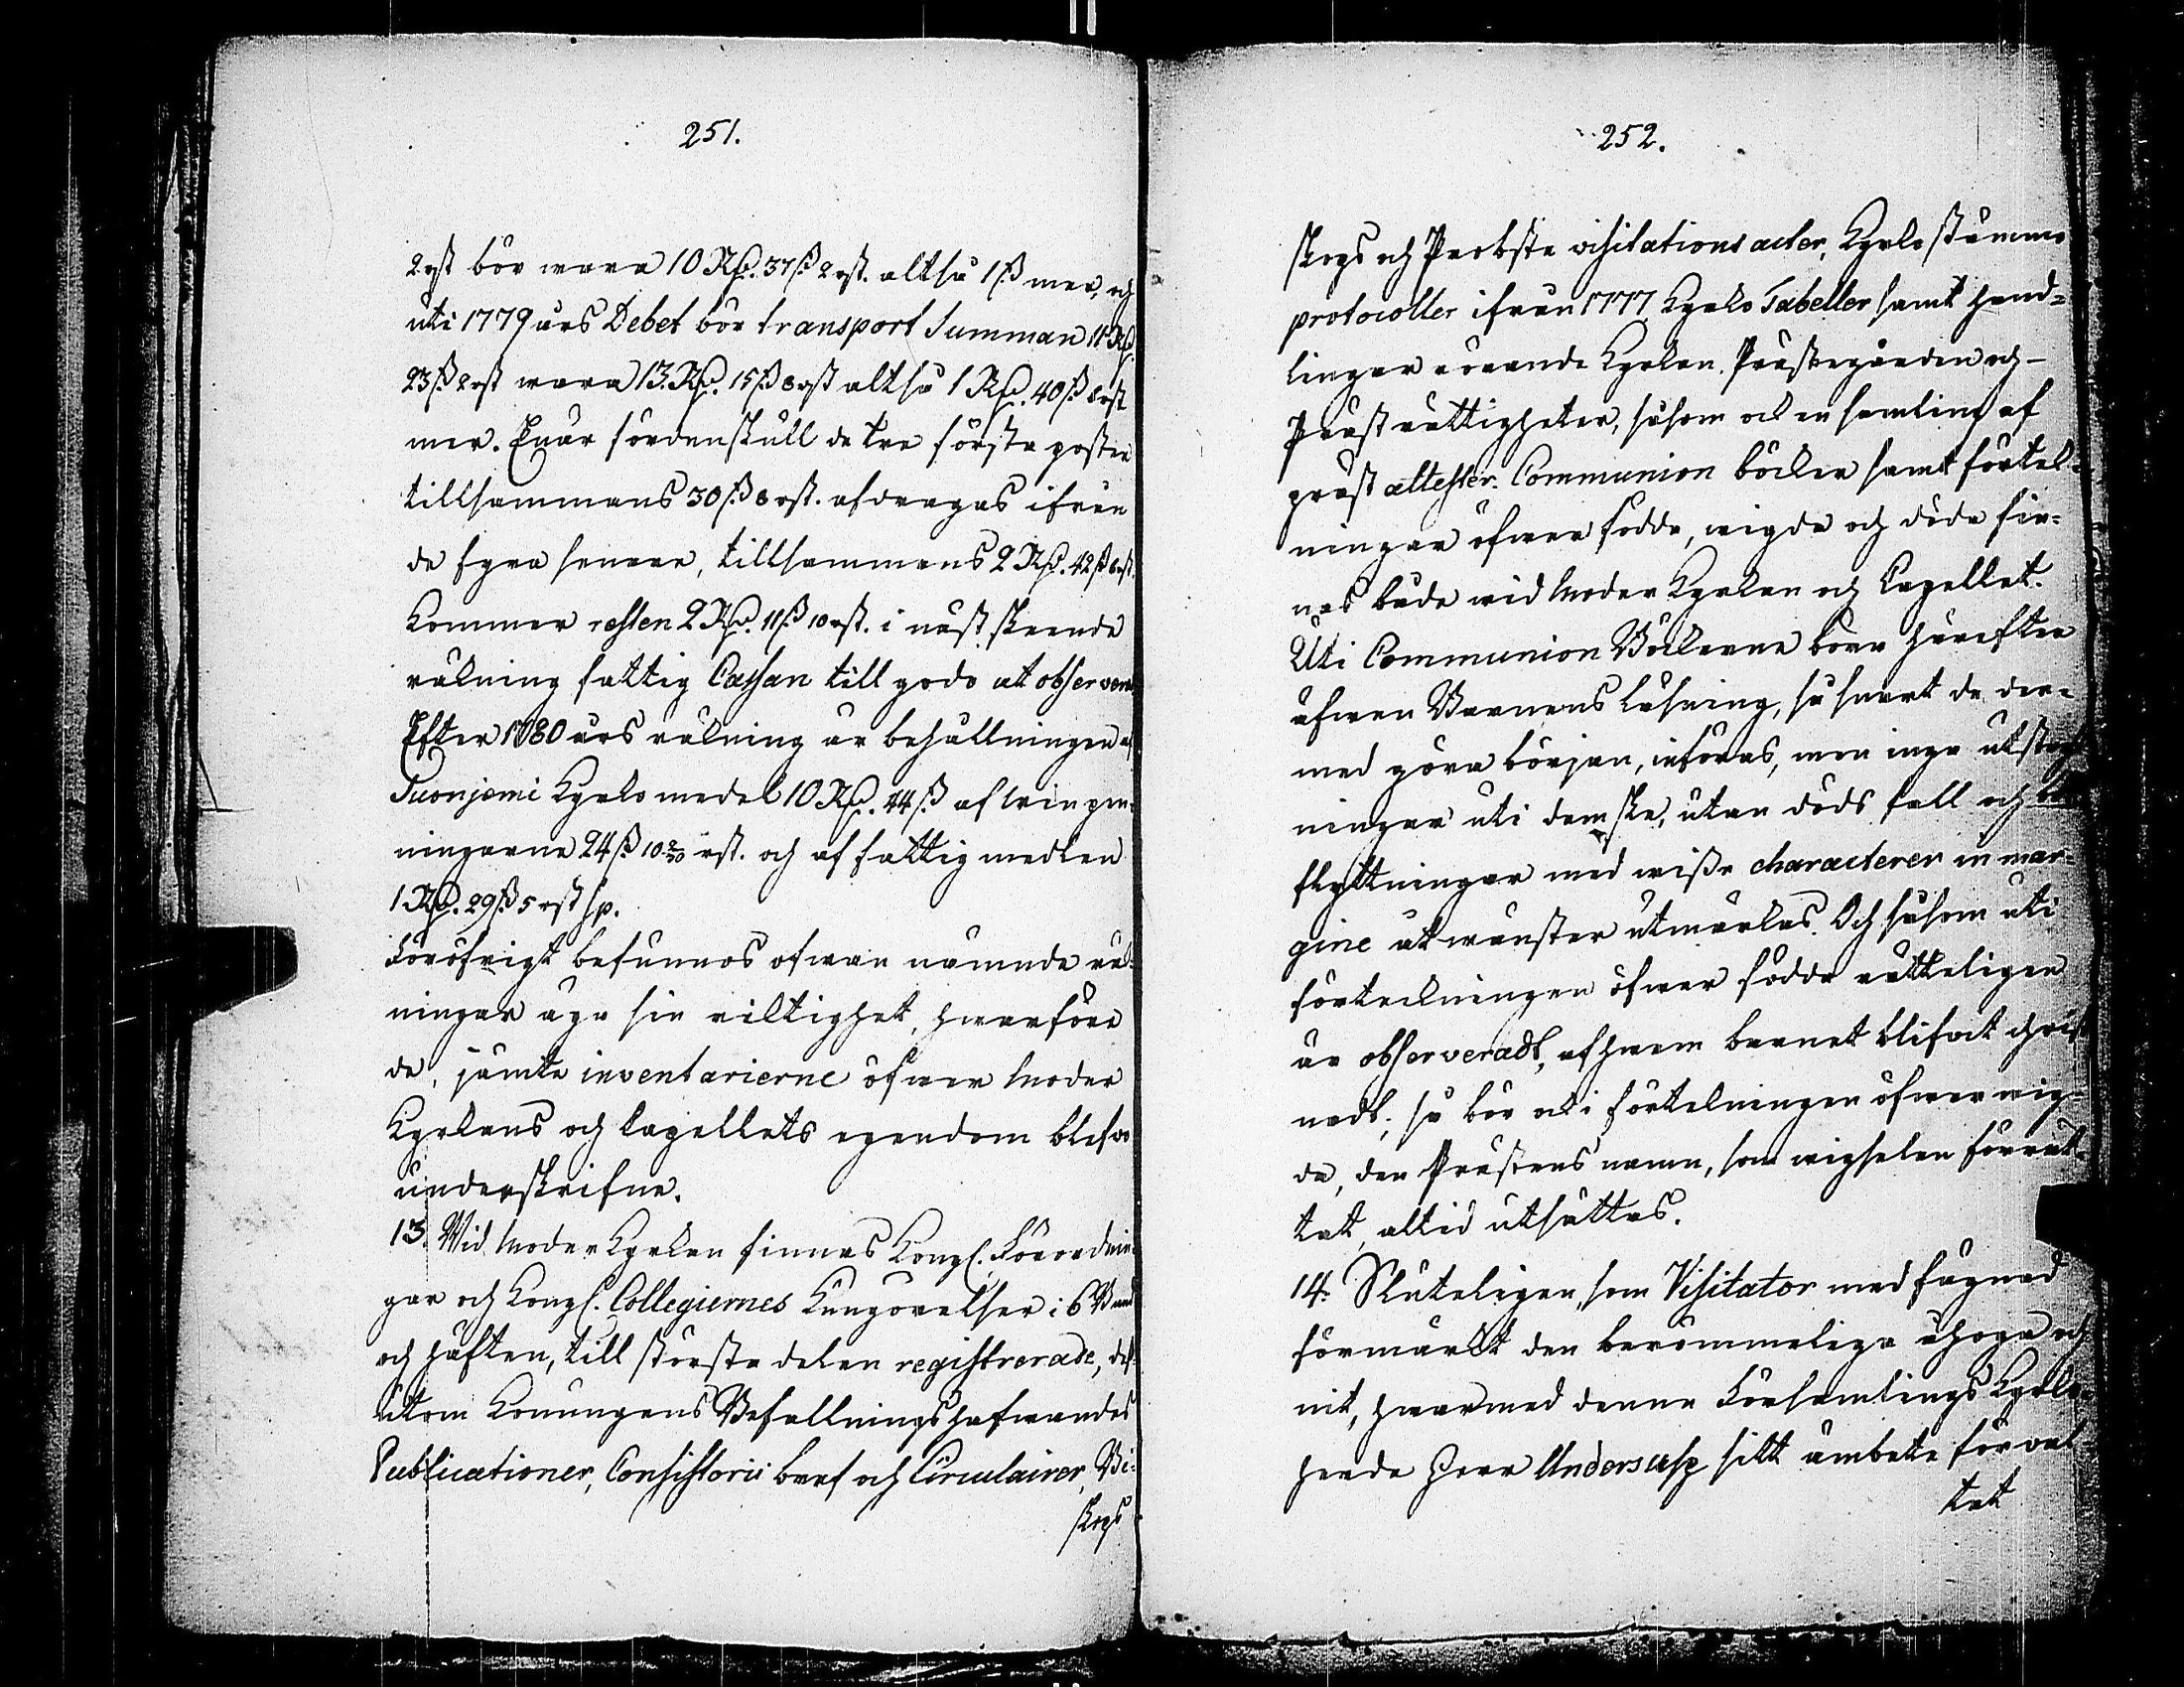 251.
2 rst bör wara 10 Rd. 37 ß 2 rst. altså 1 ß mer, och
uti 1779 års Debet bör transport Summan 11 Rd.
23 ß 2 rst wara 13. Rd. 15 ß 8 rst altså 1 Rd. 40 ß 6 rst
mer. Enär fördenskull de tre första poster
tillsammans 30 ß 8 rst. afdragas ifrån
de fyra senare, tillsammans 2 Rd. 42 ß 6 rst.
Kommer resten 2 Rd. 11 ß 10 rst. i näst skeende
räkning fattig Cassan till godo at observera
Efter 1780 års räkning är behållningen af
Suonjemi Kyrko medel 10 Rd. 44 ß af winpen-
ningarne 24 ß 10 rst. och af fattig medlen
1 Rd. 29 ß 5 rst sp.
Föröfrigt befunnos ofwan nämnde räk-
ningar äga sin riktighet, hwarföre
de, jämte inventarierne öfwer Moder
Kyrkans och Capellets egendom blefwo
underskrifne.
13. Wid Moder Kyrkan finnas Kongl. Förordnin-
gar och Kongl. Collegiernes Kungörelser i 6 Band
och häften, till största delen registrerade, des-
utom Konungens Befallningshafwandes
Publicationer, Consistorii bref och Circulairer, Bi-
skops
252.
skops och Probste visitations acter, Kyrko stämmo
protocoller ifrån 1777 Kyrko Tabeller samt hand-
lingar rörande Kyrkan. Prästegården och
Präst rättigheter, såsom ock en samling af
präst attester. Communion böcker samt förtek-
ningar öfwer födde, wigde och döde fin-
nas både wid Moder Kyrkan och Capellet.
Uti Communion Böckerne böra härefter
äfwen Barnens läsning, så snart de der-
med göra början, införas, men inga utstryk-
ningar uti dem ske, utan döds fall och bort
flyttningar med wissa characterer in mar-
gine åt wänster utmärkas. Och såsom uti
förtekningen öfwer födde rätteligen
är observeradt, af hwem barnet blifwit christ-
nadt; så bör ock i förtekningen öfwer wig-
de, den Prästens namn, som wigselen förrät-
tat, altid utsättas.
14. Sluteligen, som Visitator med fägnad
förmärkt den berömmeliga åhoga och
nit, hwarmed denna Församlings Kyrko-
herde Herr Anders sitt ämbete förwal-
tat